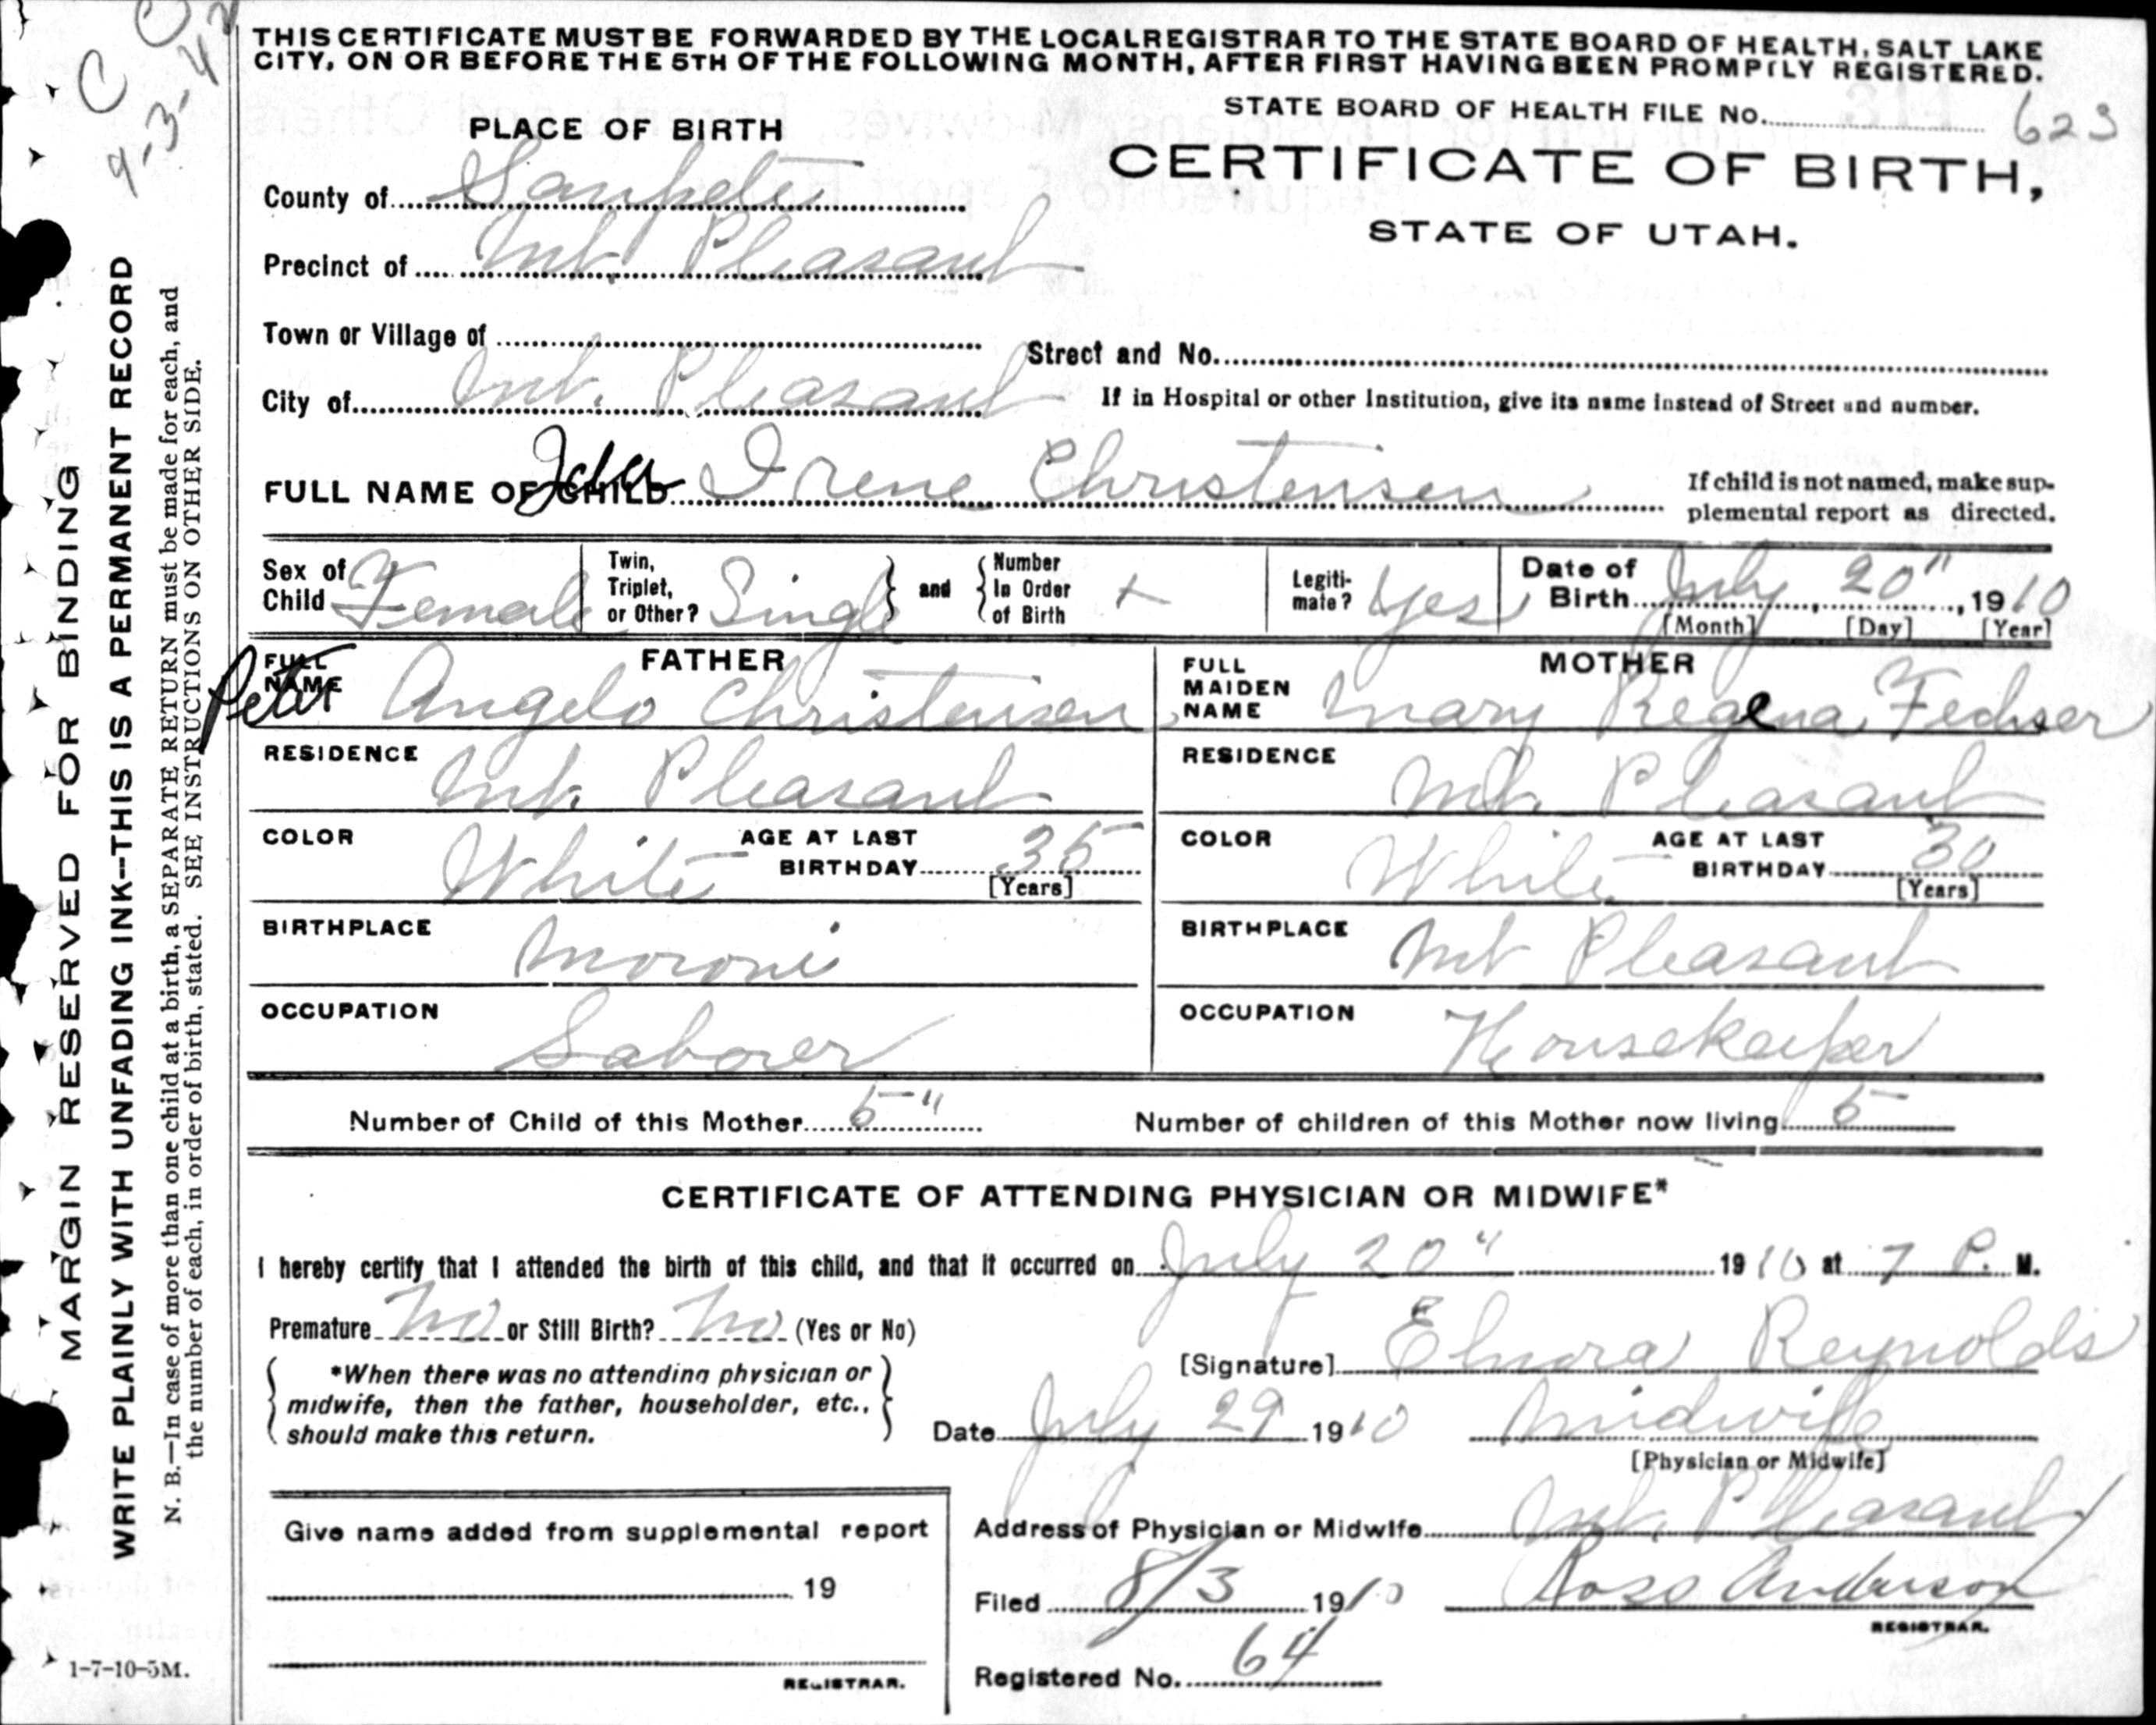 C C
9-3-42
THIS CERTIFICATE MUST BE FORWARDED BY THE LOCAL REGISTRAR TO THE STATE BOARD OF HEALTH, SALT LAKE
CITY, ON OR BEFORE THE 5TH OF THE FOLLOWING MONTH, AFTER FIRST HAVING BEEN PROMPTLY REGISTERED.
STATE BOARD OF HEALTH FILE No. 623
PLACE OF BIRTH
CERTIFICATE OF BIRTH,
STATE OF UTAH.
County of Sanpete
Precinct of Mt. Pleasant
Town or Village of
Street and No.
City of Mt. Pleasant
If in Hospital or other Institution, give its name instead of Street and number.
FULL NAME OF CHILD Ida Irene Christensen
If child is not named, make sup-
plemental report as directed.
Sex of Child Female
Twin, Triplet, or Other? Single
and
Number In Order of Birth +
Legiti-mate? Yes
Date of Birth July 20", 1910
[Month] [Day] [Year]
FATHER
FULL NAME Peter Angelo Christensen
RESIDENCE Mt. Pleasant
COLOR White
AGE AT LAST BIRTHDAY 35
[Years]
BIRTHPLACE Moroni
OCCUPATION Laborer
MOTHER
FULL MAIDEN NAME Mary Regena Fechser
RESIDENCE Mt. Pleasant
COLOR White
AGE AT LAST BIRTHDAY 30
[Years]
BIRTHPLACE Mt Pleasant
OCCUPATION Housekeeper
Number of Child of this Mother 5"
Number of children of this Mother now living 5
CERTIFICATE OF ATTENDING PHYSICIAN OR MIDWIFE*
I hereby certify that I attended the birth of this child, and that it occurred on July 20" 1910 at 7 P. M.
Premature No or Still Birth? No (Yes or No)
*When there was no attending physician or
midwife, then the father, householder, etc.,
should make this return.
[Signature] Elnora Reynolds
Date July 29 1910 Midwife
[Physician or Midwife]
Give name added from supplemental report
19
REGISTRAR.
Address of Physician or Midwife Mt. Pleasant
Filed 8/3 1910 Rose Anderson
REGISTRAR.
Registered No. 64
MARGIN RESERVED FOR BINDING
WRITE PLAINLY WITH UNFADING INK--THIS IS A PERMANENT RECORD
N. B.—In case of more than one child at a birth, a SEPARATE RETURN must be made for each, and
the number of each, in order of birth, stated. SEE INSTRUCTIONS ON OTHER SIDE.
1-7-10-5M.